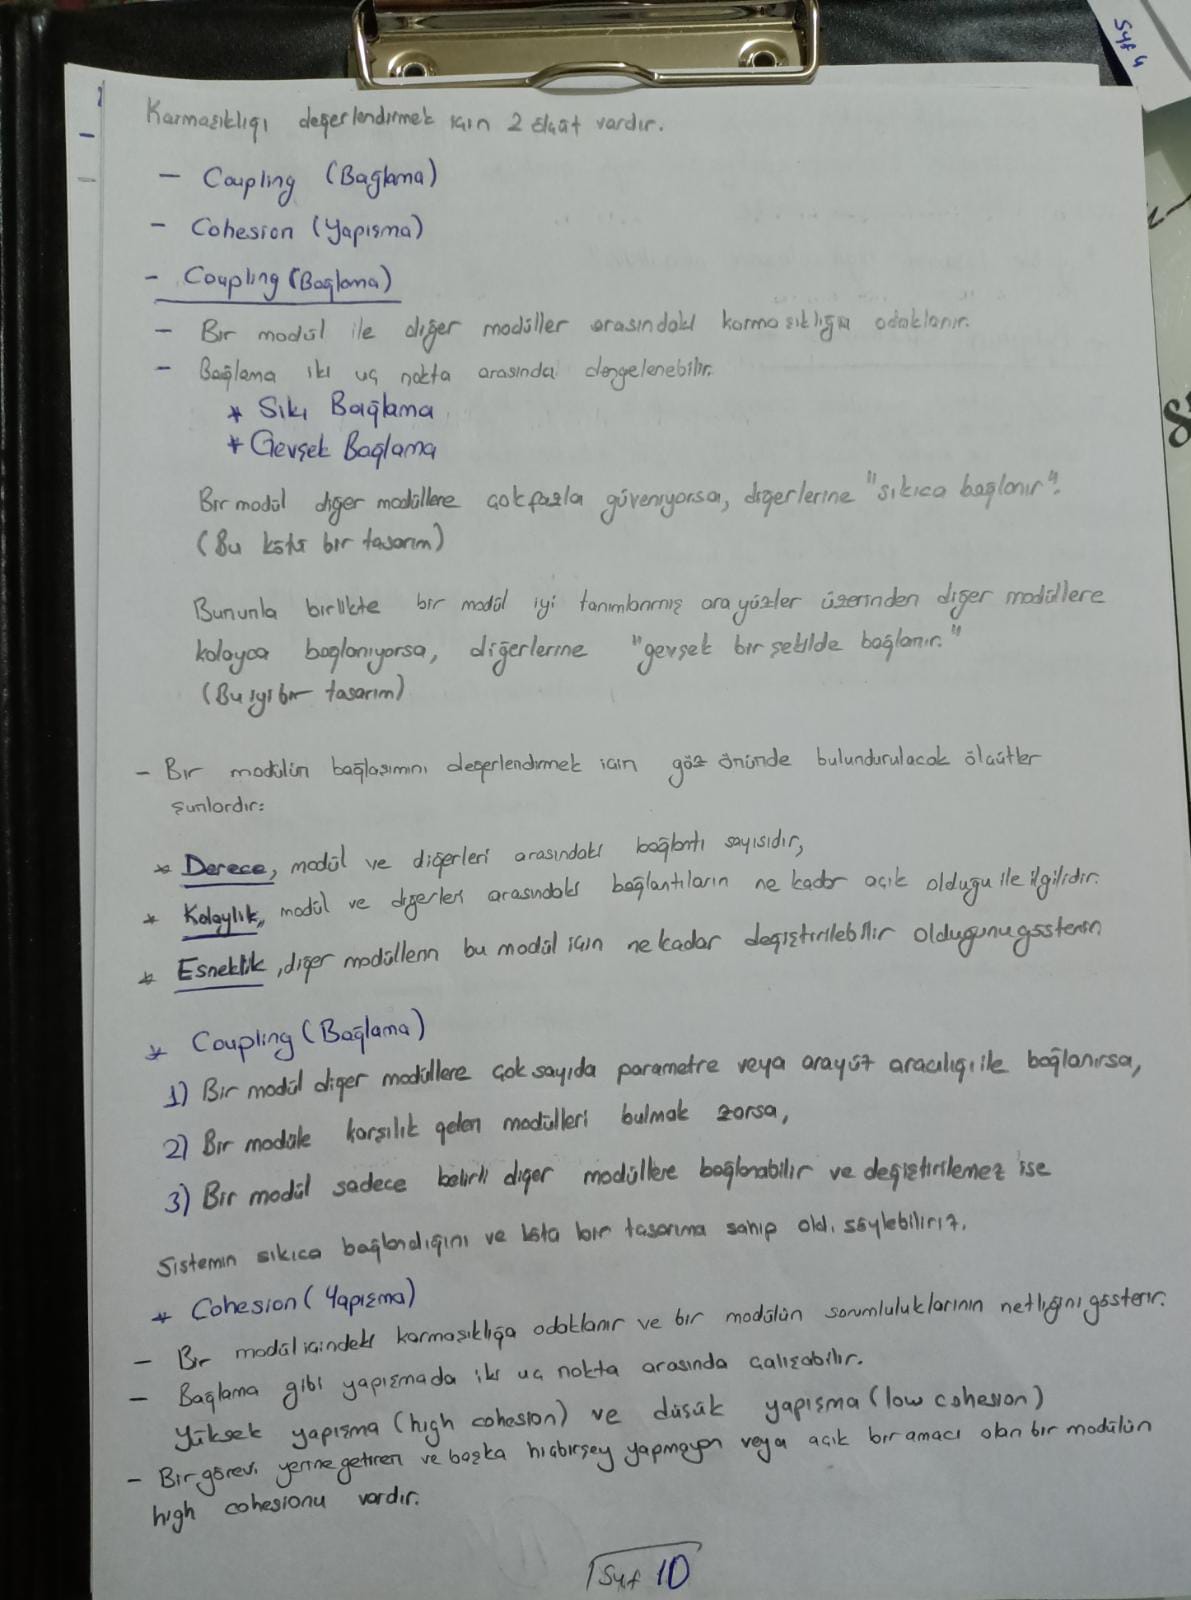 Syf 4
Karmaşıklığı değerlendirmek için 2 ölçüt vardır.
- Coupling (Bağlama)
- Cohesion (Yapışma)
- Coupling (Bağlama)
- Bir modül ile diğer modüller arasındaki karmaşıklığa odaklanır.
- Bağlama iki uç nokta arasında dengelenebilir.
* Sıkı Bağlama
* Gevşek Bağlama
Bir modül diğer modüllere çok fazla güveniyorsa, diğerlerine "sıkıca bağlanır".
(Bu kötü bir tasarım)
Bununla birlikte bir modül iyi tanımlanmış ara yüzler üzerinden diğer modüllere
kolayca bağlanıyorsa, diğerlerine "gevşek bir şekilde bağlanır."
(Bu iyi bir tasarım)
- Bir modülün bağlaşımını değerlendirmek için göz önünde bulundurulacak ölçütler
şunlardır:
* Derece, modül ve diğerleri arasındaki bağlantı sayısıdır,
* Kolaylık, modül ve diğerleri arasındaki bağlantıların ne kadar açık olduğu ile ilgilidir.
* Esneklik, diğer modüllerin bu modül için ne kadar değiştirilebilir olduğunu gösterir.
* Coupling (Bağlama)
1) Bir modül diğer modüllere çok sayıda parametre veya arayüz aracılığı ile bağlanırsa,
2) Bir modüle karşılık gelen modülleri bulmak zorsa,
3) Bir modül sadece belirli diğer modüllere bağlanabilir ve değiştirilemez ise
Sistemin sıkıca bağlandığını ve kötü bir tasarıma sahip old. söylebiliriz.
* Cohesion (Yapışma)
- Bir modül içindeki karmaşıklığa odaklanır ve bir modülün sorumluluklarının netliğini gösterir.
- Bağlama gibi yapışmada iki uç nokta arasında çalışabilir.
Yüksek yapışma (high cohesion) ve düşük yapışma (low cohesion)
- Bir görevi yerine getiren ve başka hiçbirşey yapmayan veya açık bir amacı olan bir modülün
high cohesionu vardır.
Syf 10